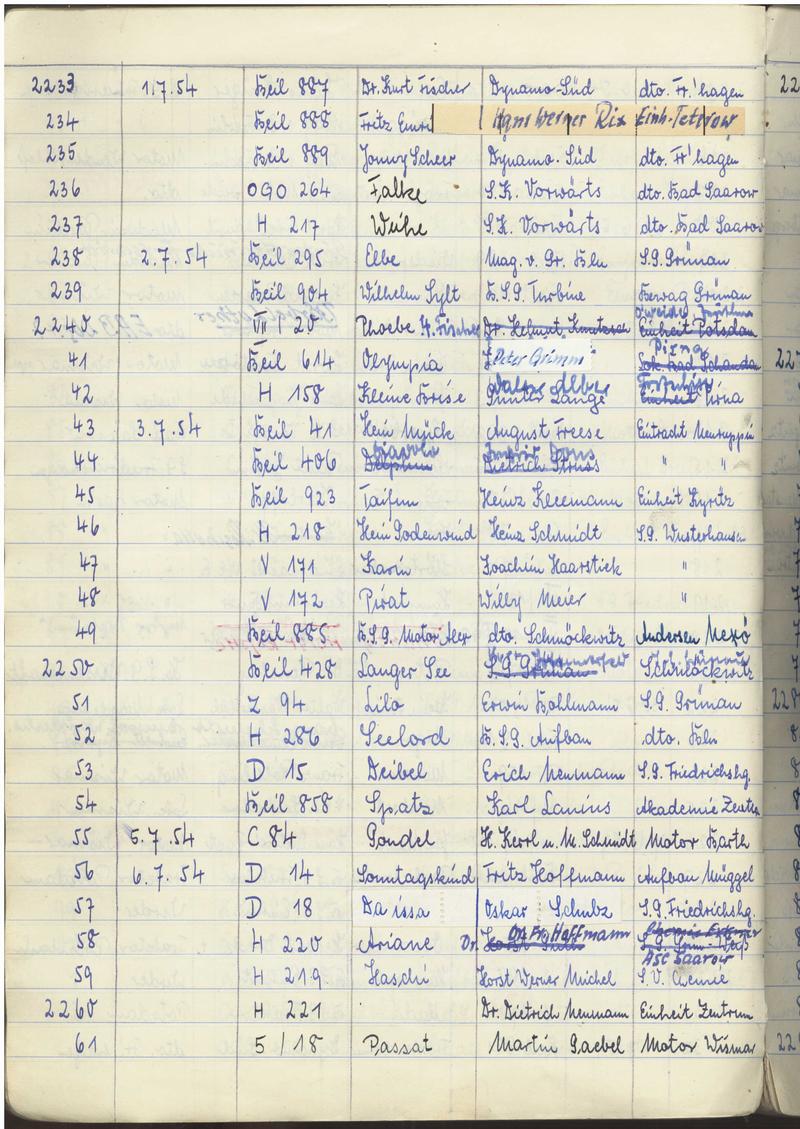 2233 1.7.54 Keil 887 Dr. Kurt Fischer Dynamo-Süd dto. Fr'hagen
234 Keil 888 Fritz Hans Werner Rix Einh-Teterow
235 Keil 889 Jonny Scheer Dynamo-Süd dto. Fr'hagen
236 OGO 264 Falke S.K. Vorwärts dto. Bad Saarow
237 H 217 Weihe S.K. Vorwärts dto. Bad Saarow
238 2.7.54 Keil 295 Elbe Mag. v. Gr. Bln S.G. Grünau
239 Keil 904 Wilhelm Sylt B.S.G. Turbine Bewag Grünau
2240 VII / 20 Phoebe H. Fischer Dr. Helmut Einheit Potsdam
Pirna
41 Keil 614 Olympia Peter Grimm Bad Schandau
Walter Alber
42 H 158 Kleine Brise Günter Lange Einheit Pirna
43 3.7.54 Keil 41 Hein Mück August Freese Eintracht Neuruppin
44 Keil 406 Delphin Dietrich Struss " "
45 Keil 923 Taifun Heinz Kleemann Einheit Kyritz
46 H 218 Hein Godenwind Heinz Schmidt S.G. Wusterhausen
47 V 171 Karin Joachim Haarstick "
48 V 172 Pirat Willy Meier "
49 Keil 885 B.S.G. Motor dto. Schmöckwitz Andersen Nexö
2250 Keil 428 Langer See S.G. Grünau Schmöckwitz
51 Z 94 Lilo Erwin Bollmann S.G. Grünau
52 H 286 Seelord B.S.G. Aufbau dto. Bln
53 D 15 Deibel Erich Neumann S.G. Friedrichshg.
54 Keil 858 Spatz Karl Lanius Akademie Zeuthen
55 5.7.54 C 84 Gondel H. Kerrl u. M. Schmidt Motor Barth
56 6.7.54 D 14 Sonntagskind Fritz Hoffmann Aufbau Müggel
57 D 18 Da issa Oskar Schubz S.G. Friedrichshg.
58 H 220 Ariane Dr. Fr. Hoffmann
ASC Saarow
59 H 219 Haschi Horst Werner Michel S.V. Chemie
2260 H 221 Dr. Dietrich Neumann Einheit Zentrum
61 5 / 18 Passat Martin Gaebel Motor Wismar